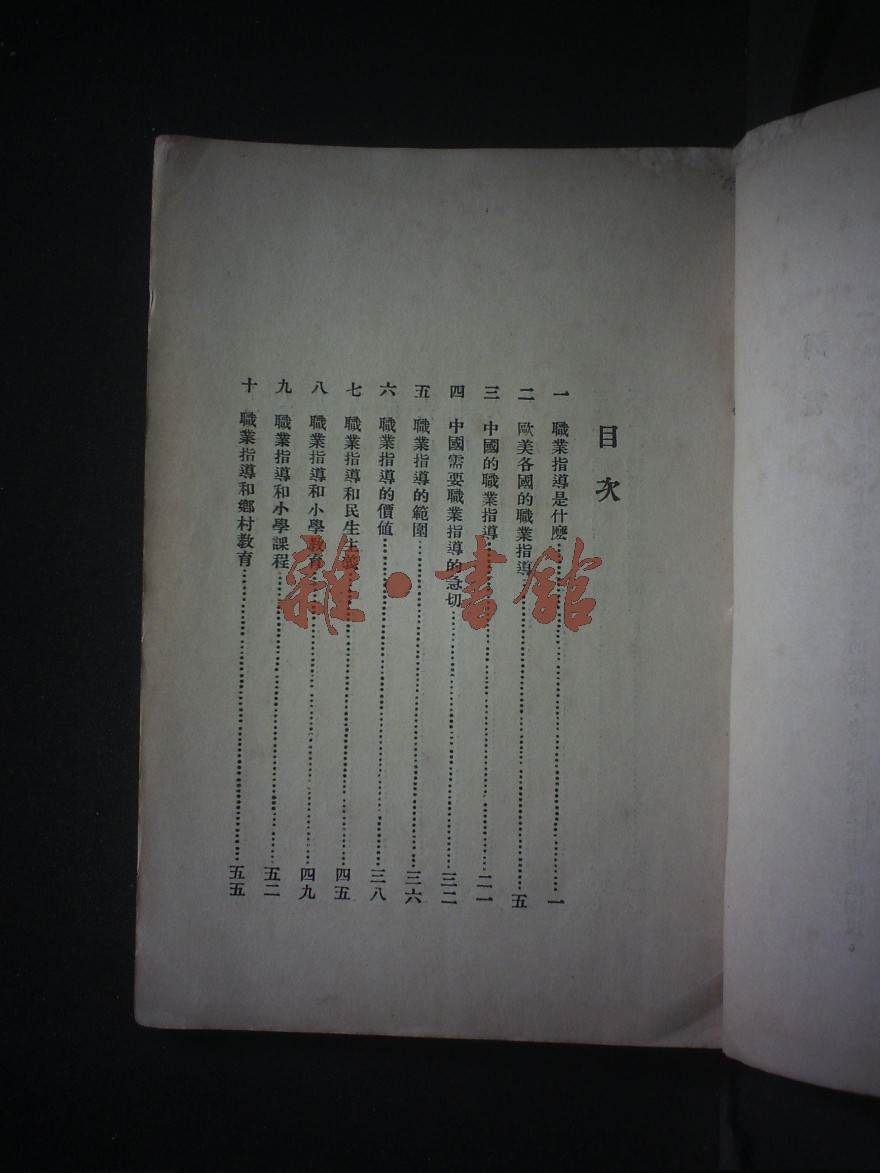 目次
一 職業指導是什麼……一
二 歐美各國的職業指導……五
三 中國的職業指導……二一
四 中國需要職業指導的急切……三二
五 職業指導的範圍……三六
六 職業指導的價值……三八
七 職業指導和民生主義……四五
八 職業指導和小學教育……四九
九 職業指導和小學課程……五二
十 職業指導和鄉村教育……五五
雜·書館